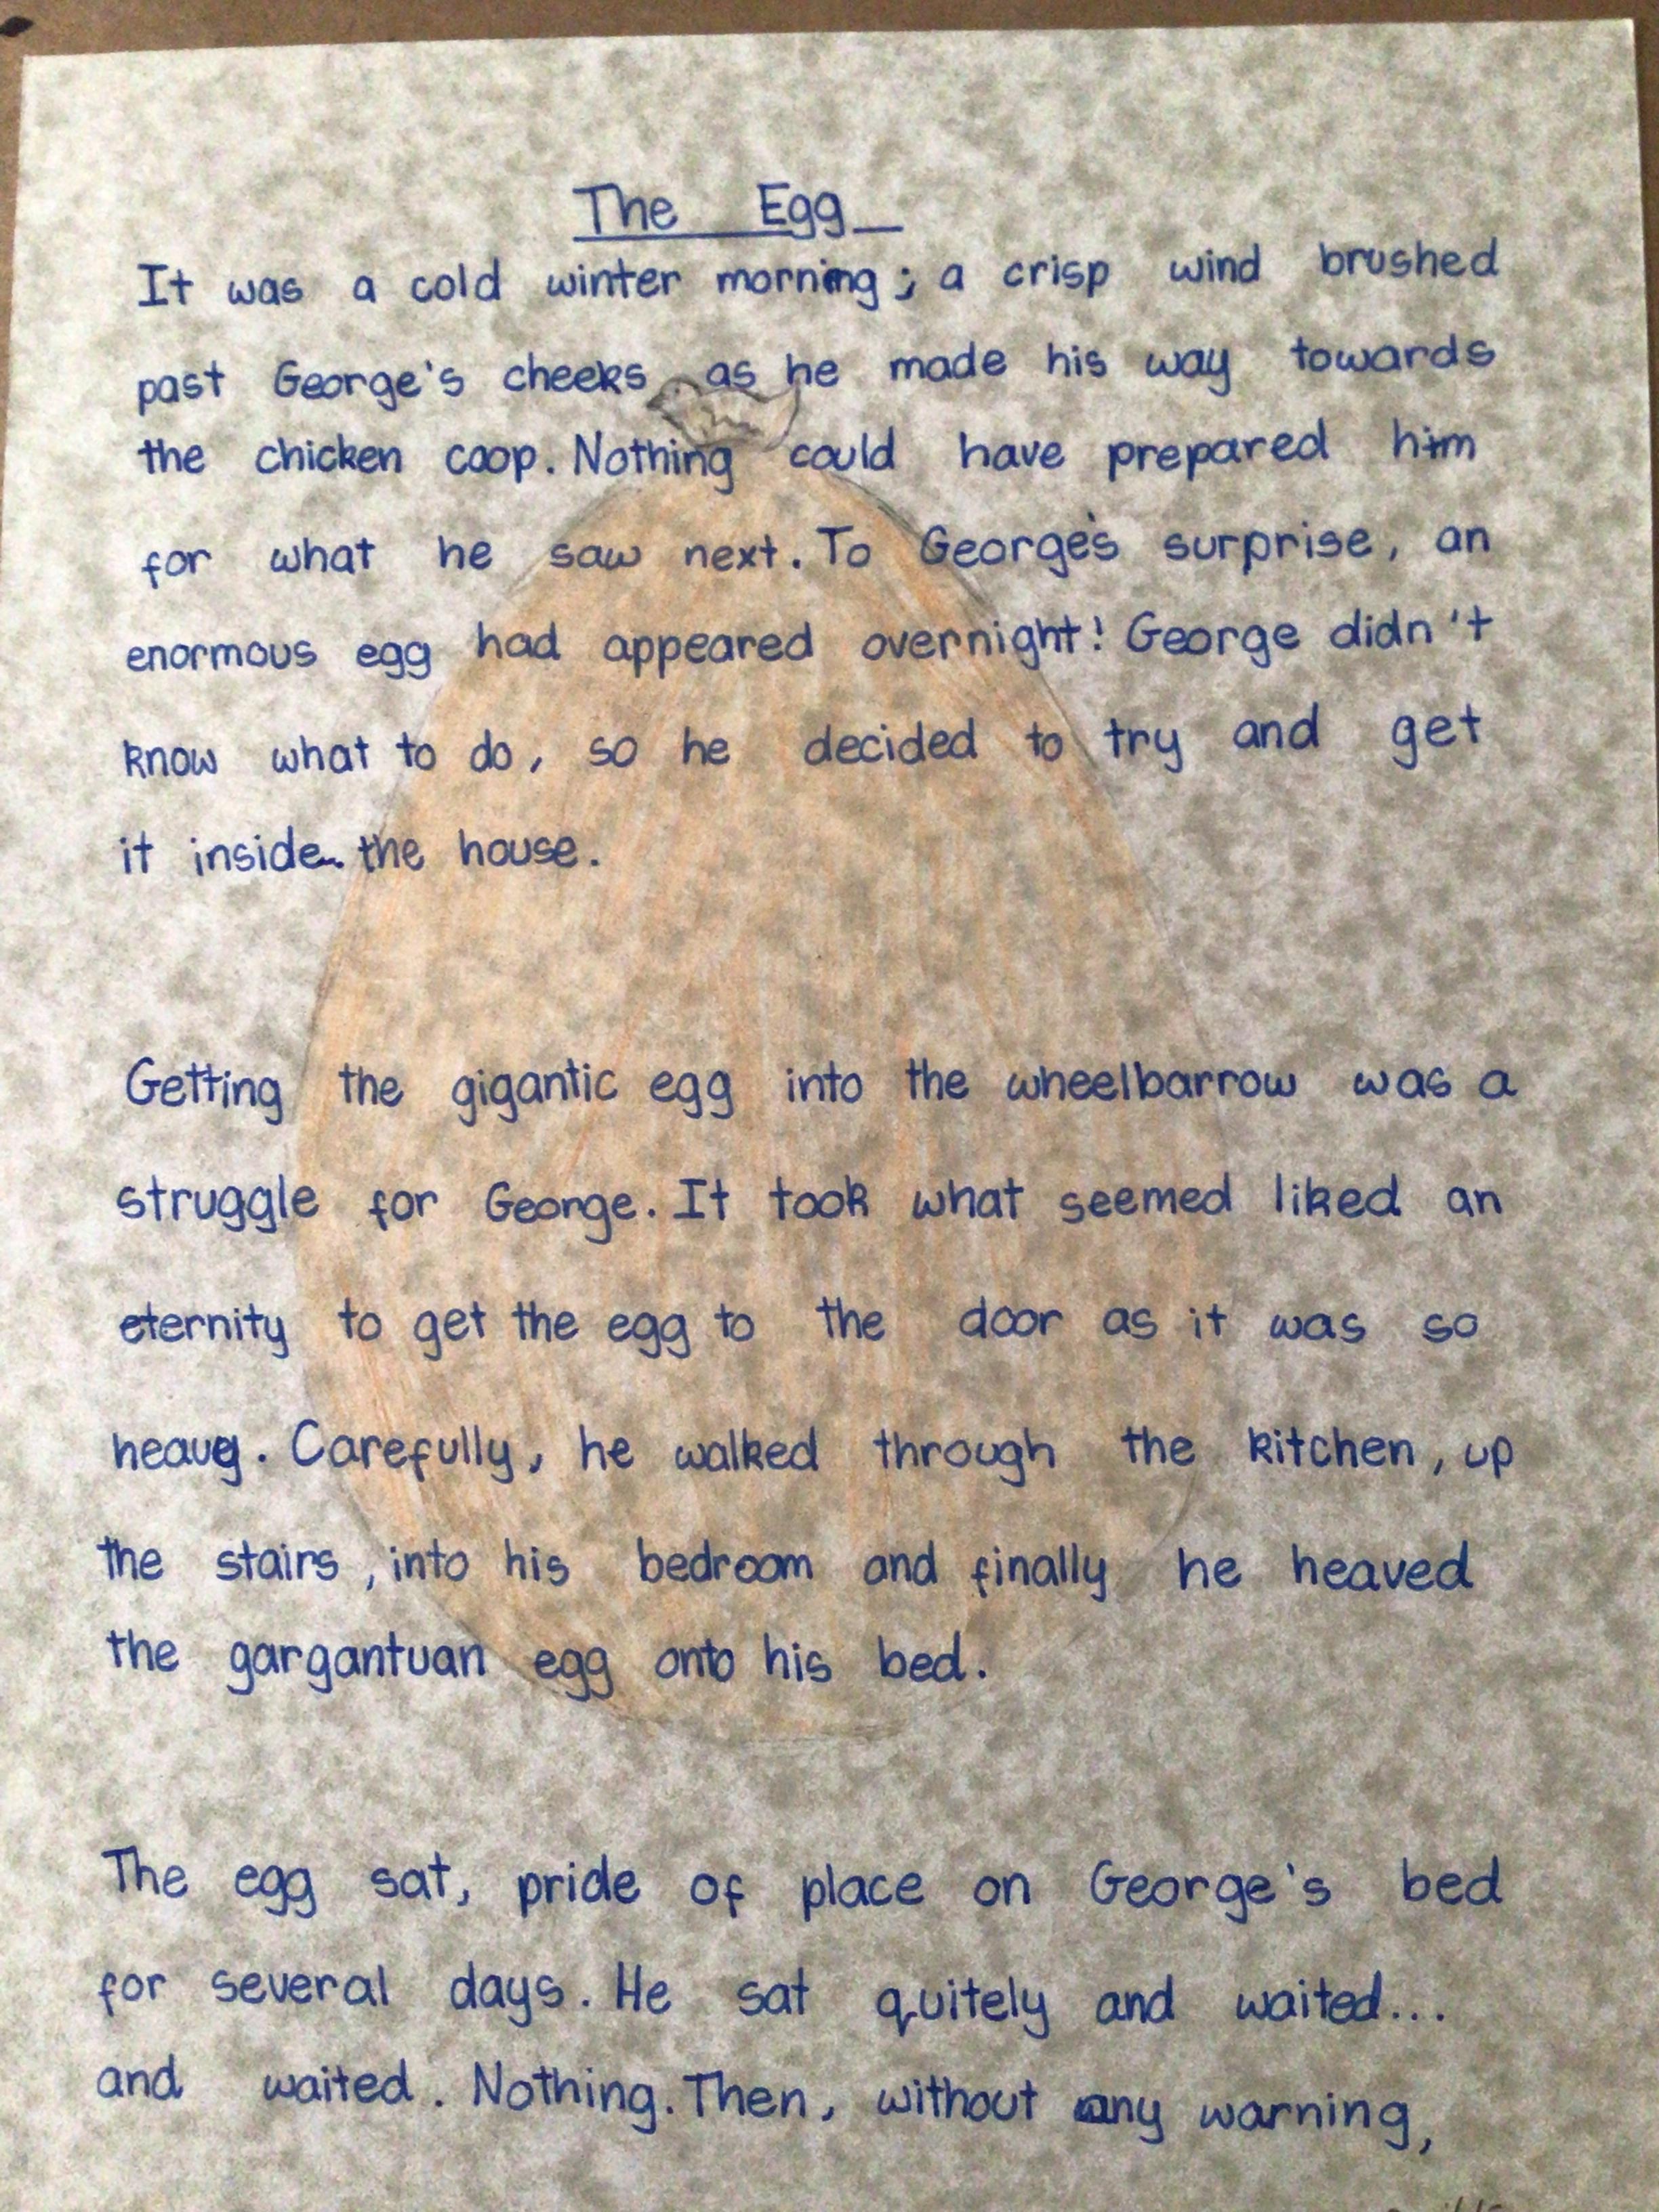 The Egg
It was a cold winter morning; a crisp wind brushed
past George's cheeks as he made his way towards
the chicken coop. Nothing could have prepared him
for what he saw next. To George's surprise, an
enormous egg had appeared overnight! George didn't
know what to do, so he decided to try and get
it inside the house.
Getting the gigantic egg into the wheelbarrow was a
struggle for George. It took what seemed liked an
eternity to get the egg to the door as it was so
heavy. Carefully, he walked through the kitchen, up
the stairs, into his bedroom and finally he heaved
the gargantuan egg onto his bed.
The egg sat, pride of place on George's bed
for several days. He sat quitely and waited...
and waited. Nothing. Then, without any warning,